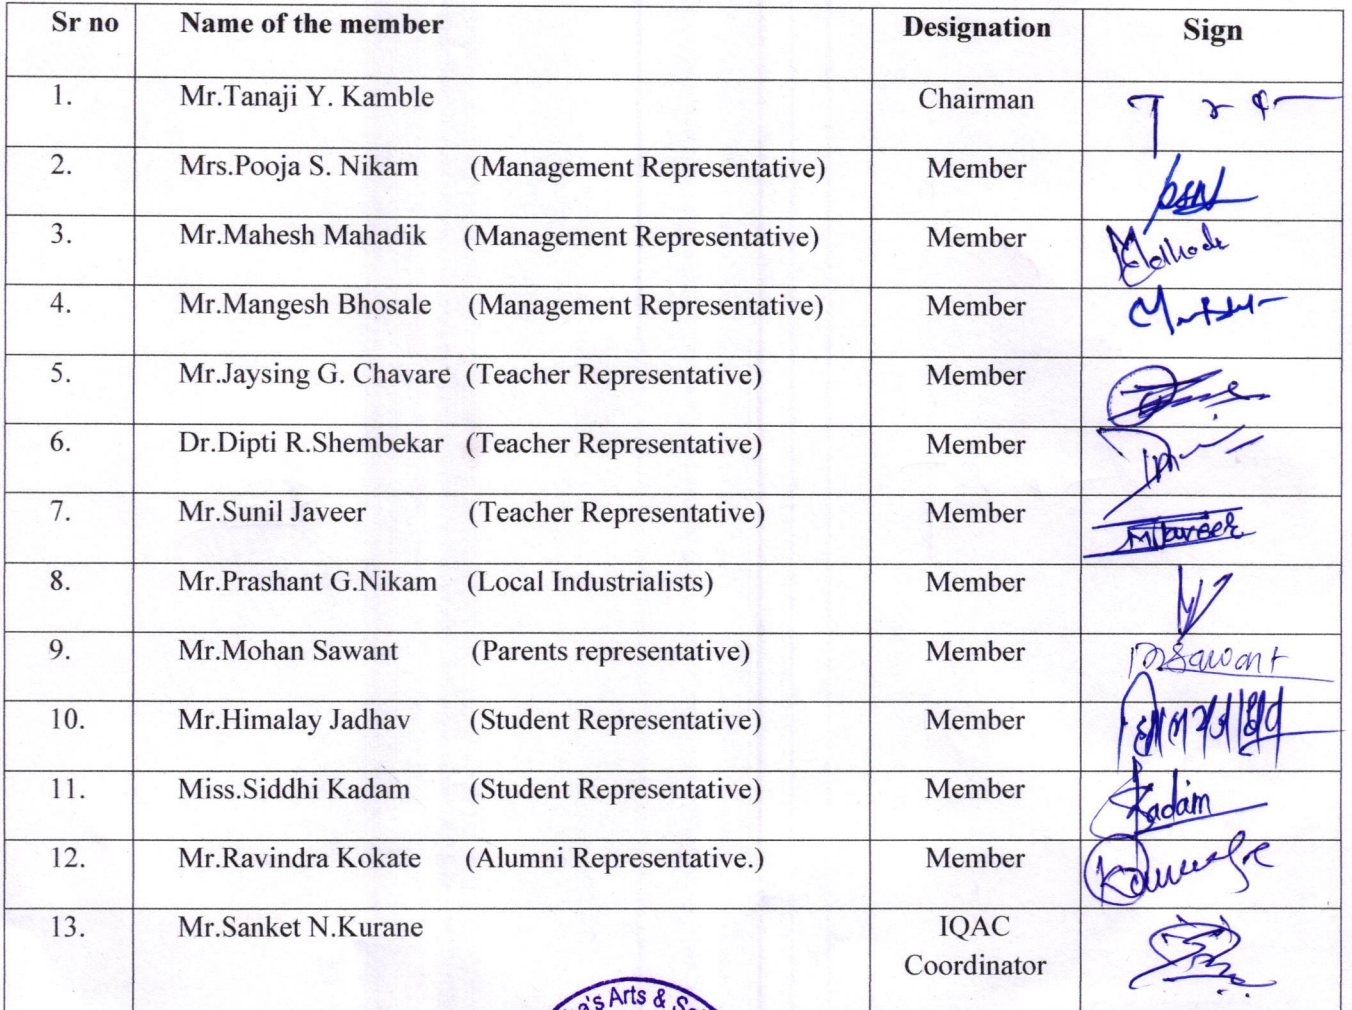 Sr no Name of the member Designation Sign
1. Mr.Tanaji Y. Kamble Chairman
2. Mrs.Pooja S. Nikam (Management Representative) Member
3. Mr.Mahesh Mahadik (Management Representative) Member
4. Mr.Mangesh Bhosale (Management Representative) Member
5. Mr.Jaysing G. Chavare (Teacher Representative) Member
6. Dr.Dipti R.Shembekar (Teacher Representative) Member
7. Mr.Sunil Javeer (Teacher Representative) Member
8. Mr.Prashant G.Nikam (Local Industrialists) Member
9. Mr.Mohan Sawant (Parents representative) Member Sawant
10. Mr.Himalay Jadhav (Student Representative) Member
11. Miss.Siddhi Kadam (Student Representative) Member Kadam
12. Mr.Ravindra Kokate (Alumni Representative.) Member
13. Mr.Sanket N.Kurane IQAC
Coordinator
Arts &